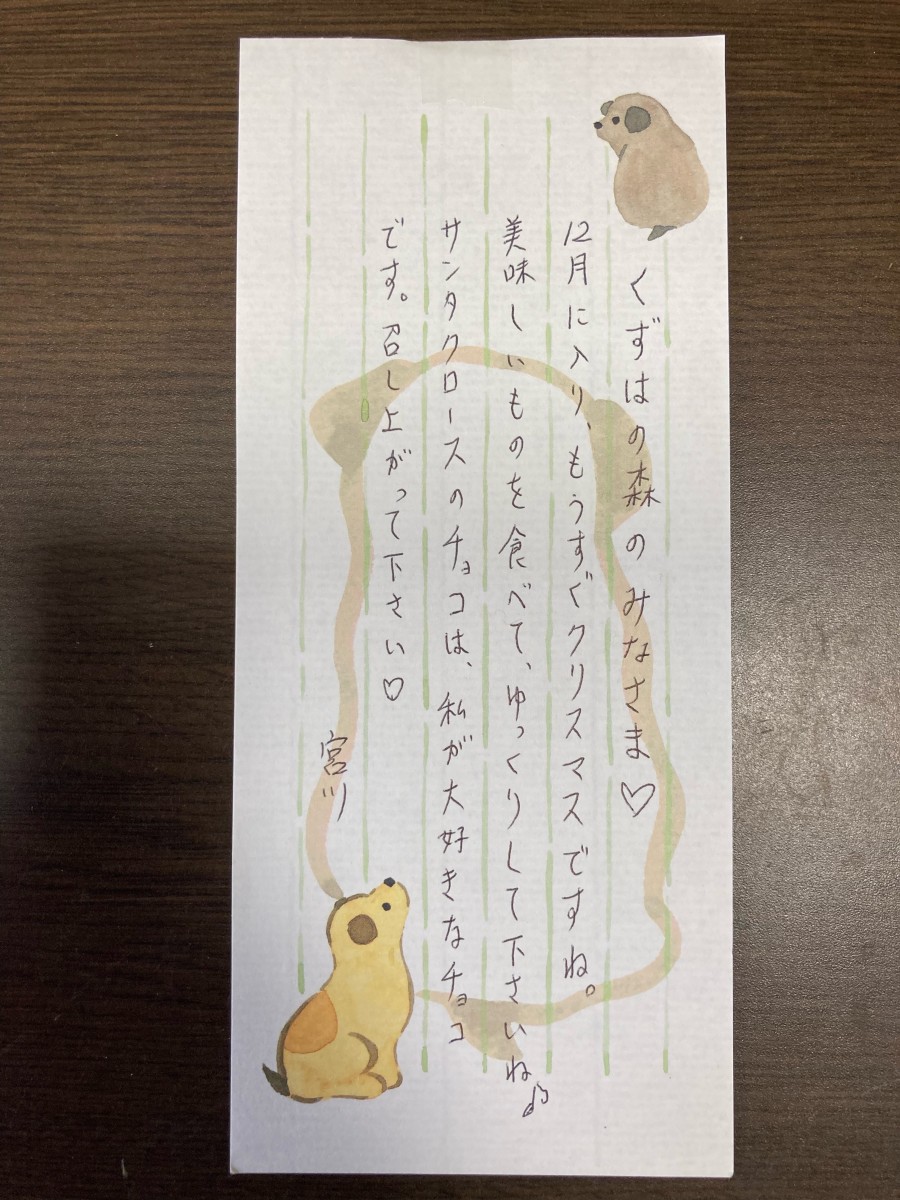 くずはの森のみなさま♡
12月に入り、もうすぐクリスマスですね。
美味しいものを食べて、ゆっくりして下さいね♪
サンタクロースのチョコは、私が大好きなチョコ
です。召し上がって下さい♡
宮川